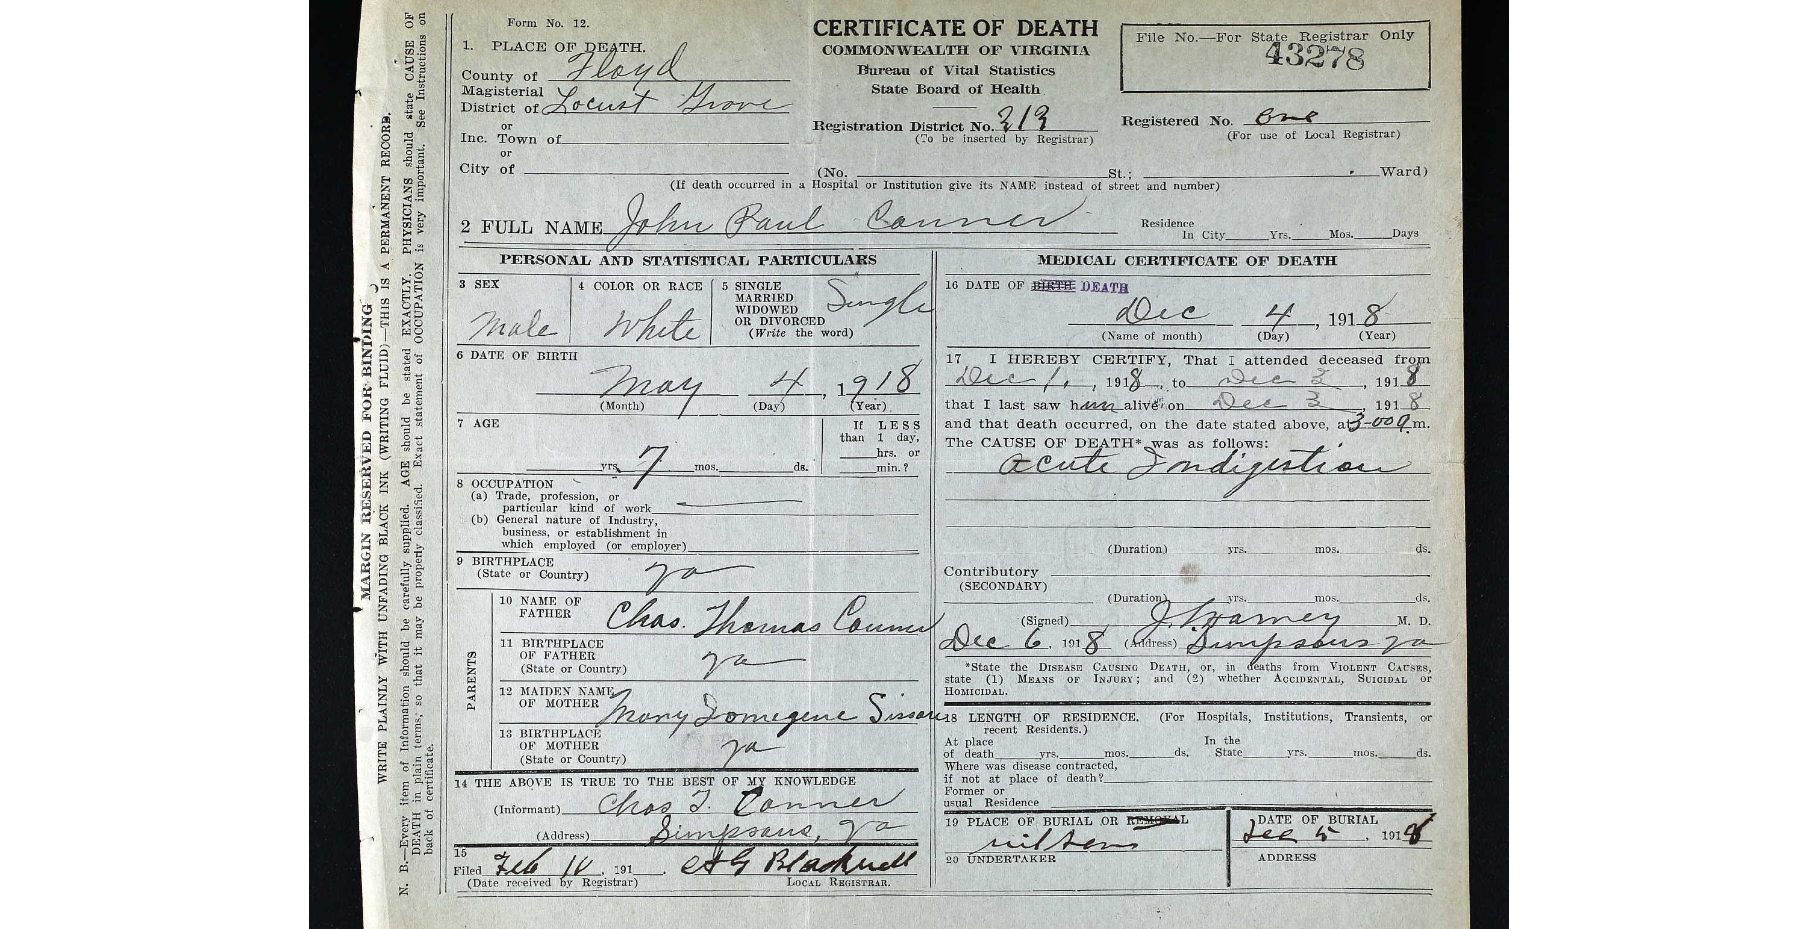 Form No. 12.
CERTIFICATE OF DEATH
COMMONWEALTH OF VIRGINIA
Bureau of Vital Statistics
State Board of Health
File No.—For State Registrar Only
43278
1. PLACE OF DEATH.
County of Floyd
Magisterial
District of Locust Grove
or
Inc. Town of
or
City of
Registration District No. 313
(To be inserted by Registrar)
Registered No. One
(For use of Local Registrar)
(No. St.; Ward)
(If death occurred in a Hospital or Institution give its NAME instead of street and number)
2 FULL NAME John Paul Conner
Residence
In City Yrs. Mos. Days
PERSONAL AND STATISTICAL PARTICULARS
3 SEX
Male
4 COLOR OR RACE
White
5 SINGLE
MARRIED
WIDOWED
OR DIVORCED
(Write the word)
Single
6 DATE OF BIRTH
May 4, 1918
(Month) (Day) (Year)
7 AGE
yrs. 7 mos. ds.
If LESS
than 1 day,
hrs. or
min.?
8 OCCUPATION
(a) Trade, profession, or
particular kind of work
(b) General nature of Industry,
business, or establishment in
which employed (or employer)
9 BIRTHPLACE
(State or Country) Va
PARENTS
10 NAME OF
FATHER Chas. Thomas Conner
11 BIRTHPLACE
OF FATHER
(State or Country) Va
12 MAIDEN NAME
OF MOTHER Mary Isomegene Sisson
13 BIRTHPLACE
OF MOTHER
(State or Country) Va
14 THE ABOVE IS TRUE TO THE BEST OF MY KNOWLEDGE
(Informant) Chas T. Conner
(Address) Simpsons, Va
15
Filed Feb 10, 191
(Date received by Registrar) LOCAL REGISTRAR.
MEDICAL CERTIFICATE OF DEATH
16 DATE OF BIRTH DEATH
Dec 4, 1918
(Name of month) (Day) (Year)
17 I HEREBY CERTIFY, That I attended deceased from
Dec 1, 1918, to Dec 3, 1918
that I last saw him alive on Dec 3, 1918
and that death occurred, on the date stated above, at 3-00 a m.
The CAUSE OF DEATH* was as follows:
Acute Indigestion
(Duration) yrs. mos. ds.
Contributory
(SECONDARY)
(Duration) yrs. mos. ds.
(Signed) M. D.
Dec 6, 1918 (Address) Simpsons Va
*State the DISEASE CAUSING DEATH, or, in deaths from VIOLENT CAUSES,
state (1) MEANS OF INJURY; and (2) whether ACCIDENTAL, SUICIDAL or
HOMICIDAL.
18 LENGTH OF RESIDENCE. (For Hospitals, Institutions, Transients, or
recent Residents.)
At place In the
of death yrs. mos. ds. State yrs. mos. ds.
Where was disease contracted,
if not at place of death?
Former or
usual Residence
19 PLACE OF BURIAL OR REMOVAL
DATE OF BURIAL
Dec 5, 1918
20 UNDERTAKER
ADDRESS
MARGIN RESERVED FOR BINDING
WRITE PLAINLY WITH UNFADING BLACK INK (WRITING FLUID)—THIS IS A PERMANENT RECORD.
N. B.—Every item of Information should be carefully supplied. AGE should be stated EXACTLY. PHYSICIANS should state CAUSE OF
DEATH in plain terms, so that it may be properly classified. Exact statement of OCCUPATION is very important. See Instructions on
back of certificate.